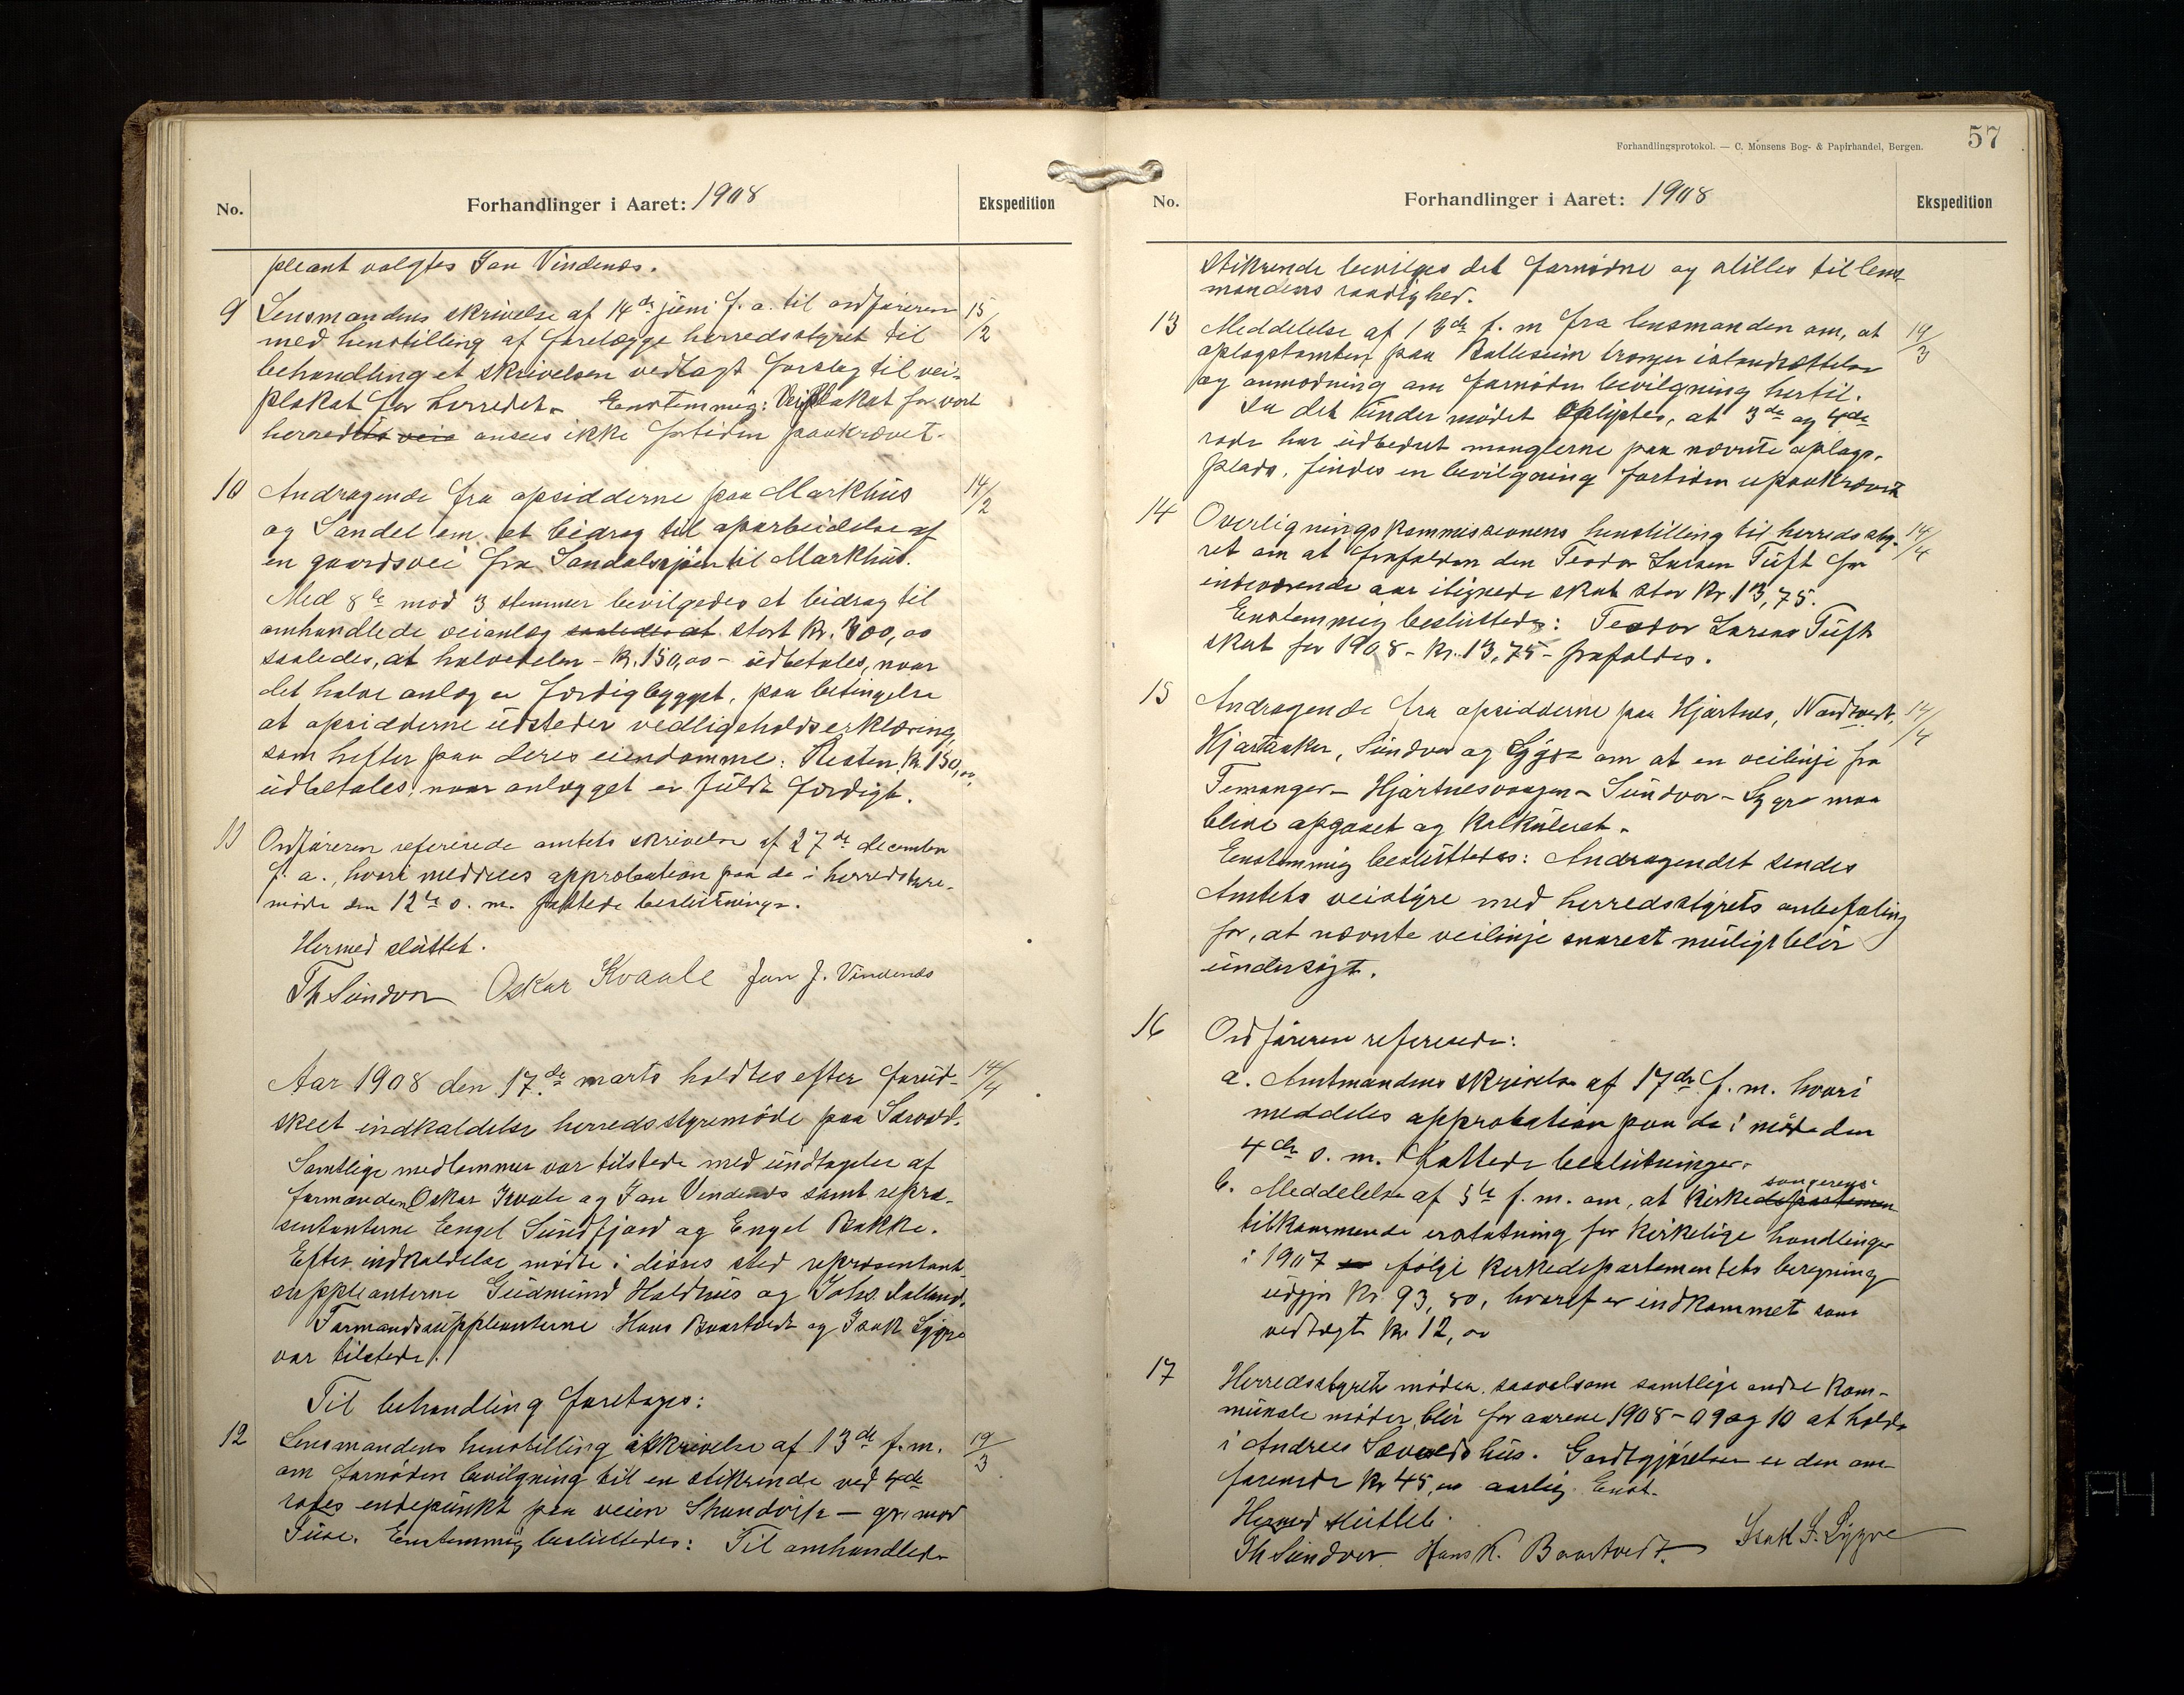 No.
Forhandlinger i Aaret: 1908
Ekspedition
pleant valgtes Jan Vindenes.
9 Lensmandens skrivelse af 14de juni f. a. til ordføreren 15/2
med henstilling af forelægge herredsstyret til
behandling et skrivelsen vedlagt forslag til vei-
plakat for herredet. Enstemmig: Veiplakat for vort
herredets veie ansees ikke fortiden paakrævet.
10 Andragende fra opsidderne paa Markhus 14/2
og Sandal om et bidrag til oparbeidelse af
en gaardsvei fra Sandalssjøen til Markhus.
Med 8te mod 3 stemmer bevilgedes et bidrag til
omhandlede veianlæg saaledes at stort kr. 300,00
saaledes, at halvdelen - kr. 150,00 - udbetales, naar
det halve anlæg er færdigbygget, paa betingelse
at opsidderne udsteder vedligeholdserklæring,
som hefter paa deres eiendomme. Resten, kr. 150,00,
udbetales, naar anlægget er fuldt færdigt.
11 Ordføreren refererede amtets skrivelse af 27de december
f. a., hvori meddeles approbation paa de i herredsstyre-
møde den 12te s. m. fattede beslutninger.
Hermed sluttet.
Th Sundvor Oskar Kvaale Jan J. Vindenes
Aar 1908 den 17de marts holdtes efter forud- 14/4
skeet indkaldelse herredsstyremøde paa Sævold.
Samtlige medlemmer var tilstede med undtagelse af
formænden Oskar Kvaale og Jan Vindenes samt repræ-
sentanterne Engel Sundfjord og Engel Bakke.
Efter indkaldelse mødte i disses sted repræsentant-
suppleanterne Gudmund Haldhus og Johs. Dalland.
Formandssuppleanterne Hans Baartvedt og Isak Lygre
var tilstede.
Til behandling foretoges:
12 Lensmandens henstilling i skrivelse af 13de f. m. 19/3
om fornøden bevilgning til en stikrende ved 4de
rodes endepunkt paa veien Strandvik — gr. mod
Fuse. Enstemmig besluttedes: Til omhandlede
Forhandlingsprotokol. — C. Monsens Bog- & Papirhandel, Bergen.
57
No.
Forhandlinger i Aaret: 1908
Ekspedition
stikrende bevilges det fornødne og stilles til lens-
mandens raadighed.
13 Meddelelse af 13de f. m. fra lensmanden om, at 14/3
oplagstomten paa Balleseim trænger istandsættelse
og anmodning om fornøden bevilgning hertil.
Da det under mødet oplystes, at 3de og 4de
rode har udbedret manglerne paa nævnte oplags-
plads, findes en bevilgning fortiden upaakrævet
14 Overligningskommissionens henstilling til herredssty- 14/4
ret om at frafalden den Teodor Larsen Tuft for
indeværende aar ilignede skat stor kr. 13,75.
Enstemmig besluttedes: Teodor Larsens Tuft
skat for 1908 - kr. 13,75 - frafaldes.
15 Andragende fra opsidderne paa Hjartnes, Nordtvedt, 14/4
Hjartaaker, Sundvor og Lygre om at en veilinje fra
Femanger - Hjartnesvaagen - Sundvor - Lygre maa
blive opgaaet og kalkuleret.
Enstemmig besluttedes: Andragendet sendes
Amtets veistyre med herredsstyrets anbefaling
for, at nævnte veilinje snarest muligt blir
undersøgt.
16 Ordføreren refererede:
a. Amtmandens skrivelse af 17de f. m. hvori
meddeles approbation paa de i møde den
4de s. m. fattede beslutninger.
b. Meddelelse af 5te f. m. om, at kirkedepartemen sangerens
tilkommende erstatning for kirkelige handlinger
i 1907 følge kirkedepartementets beregning
udgjør kr. 93,80, hvoraf er indkommet som
vedtægt kr 12,00
17 Herredsstyrets møder saavelsom samtlige andre kom-
munale møder blir for aarene 1908 - 09 og 10 at holde
i Andreas Sævolds hus. Godtgjørelsen er den om
forenede kr 45,00 aarlig. Enst.
Hermed sluttet.
Th Sundvor Hans K. Baartvedt. Isak S. Lygre